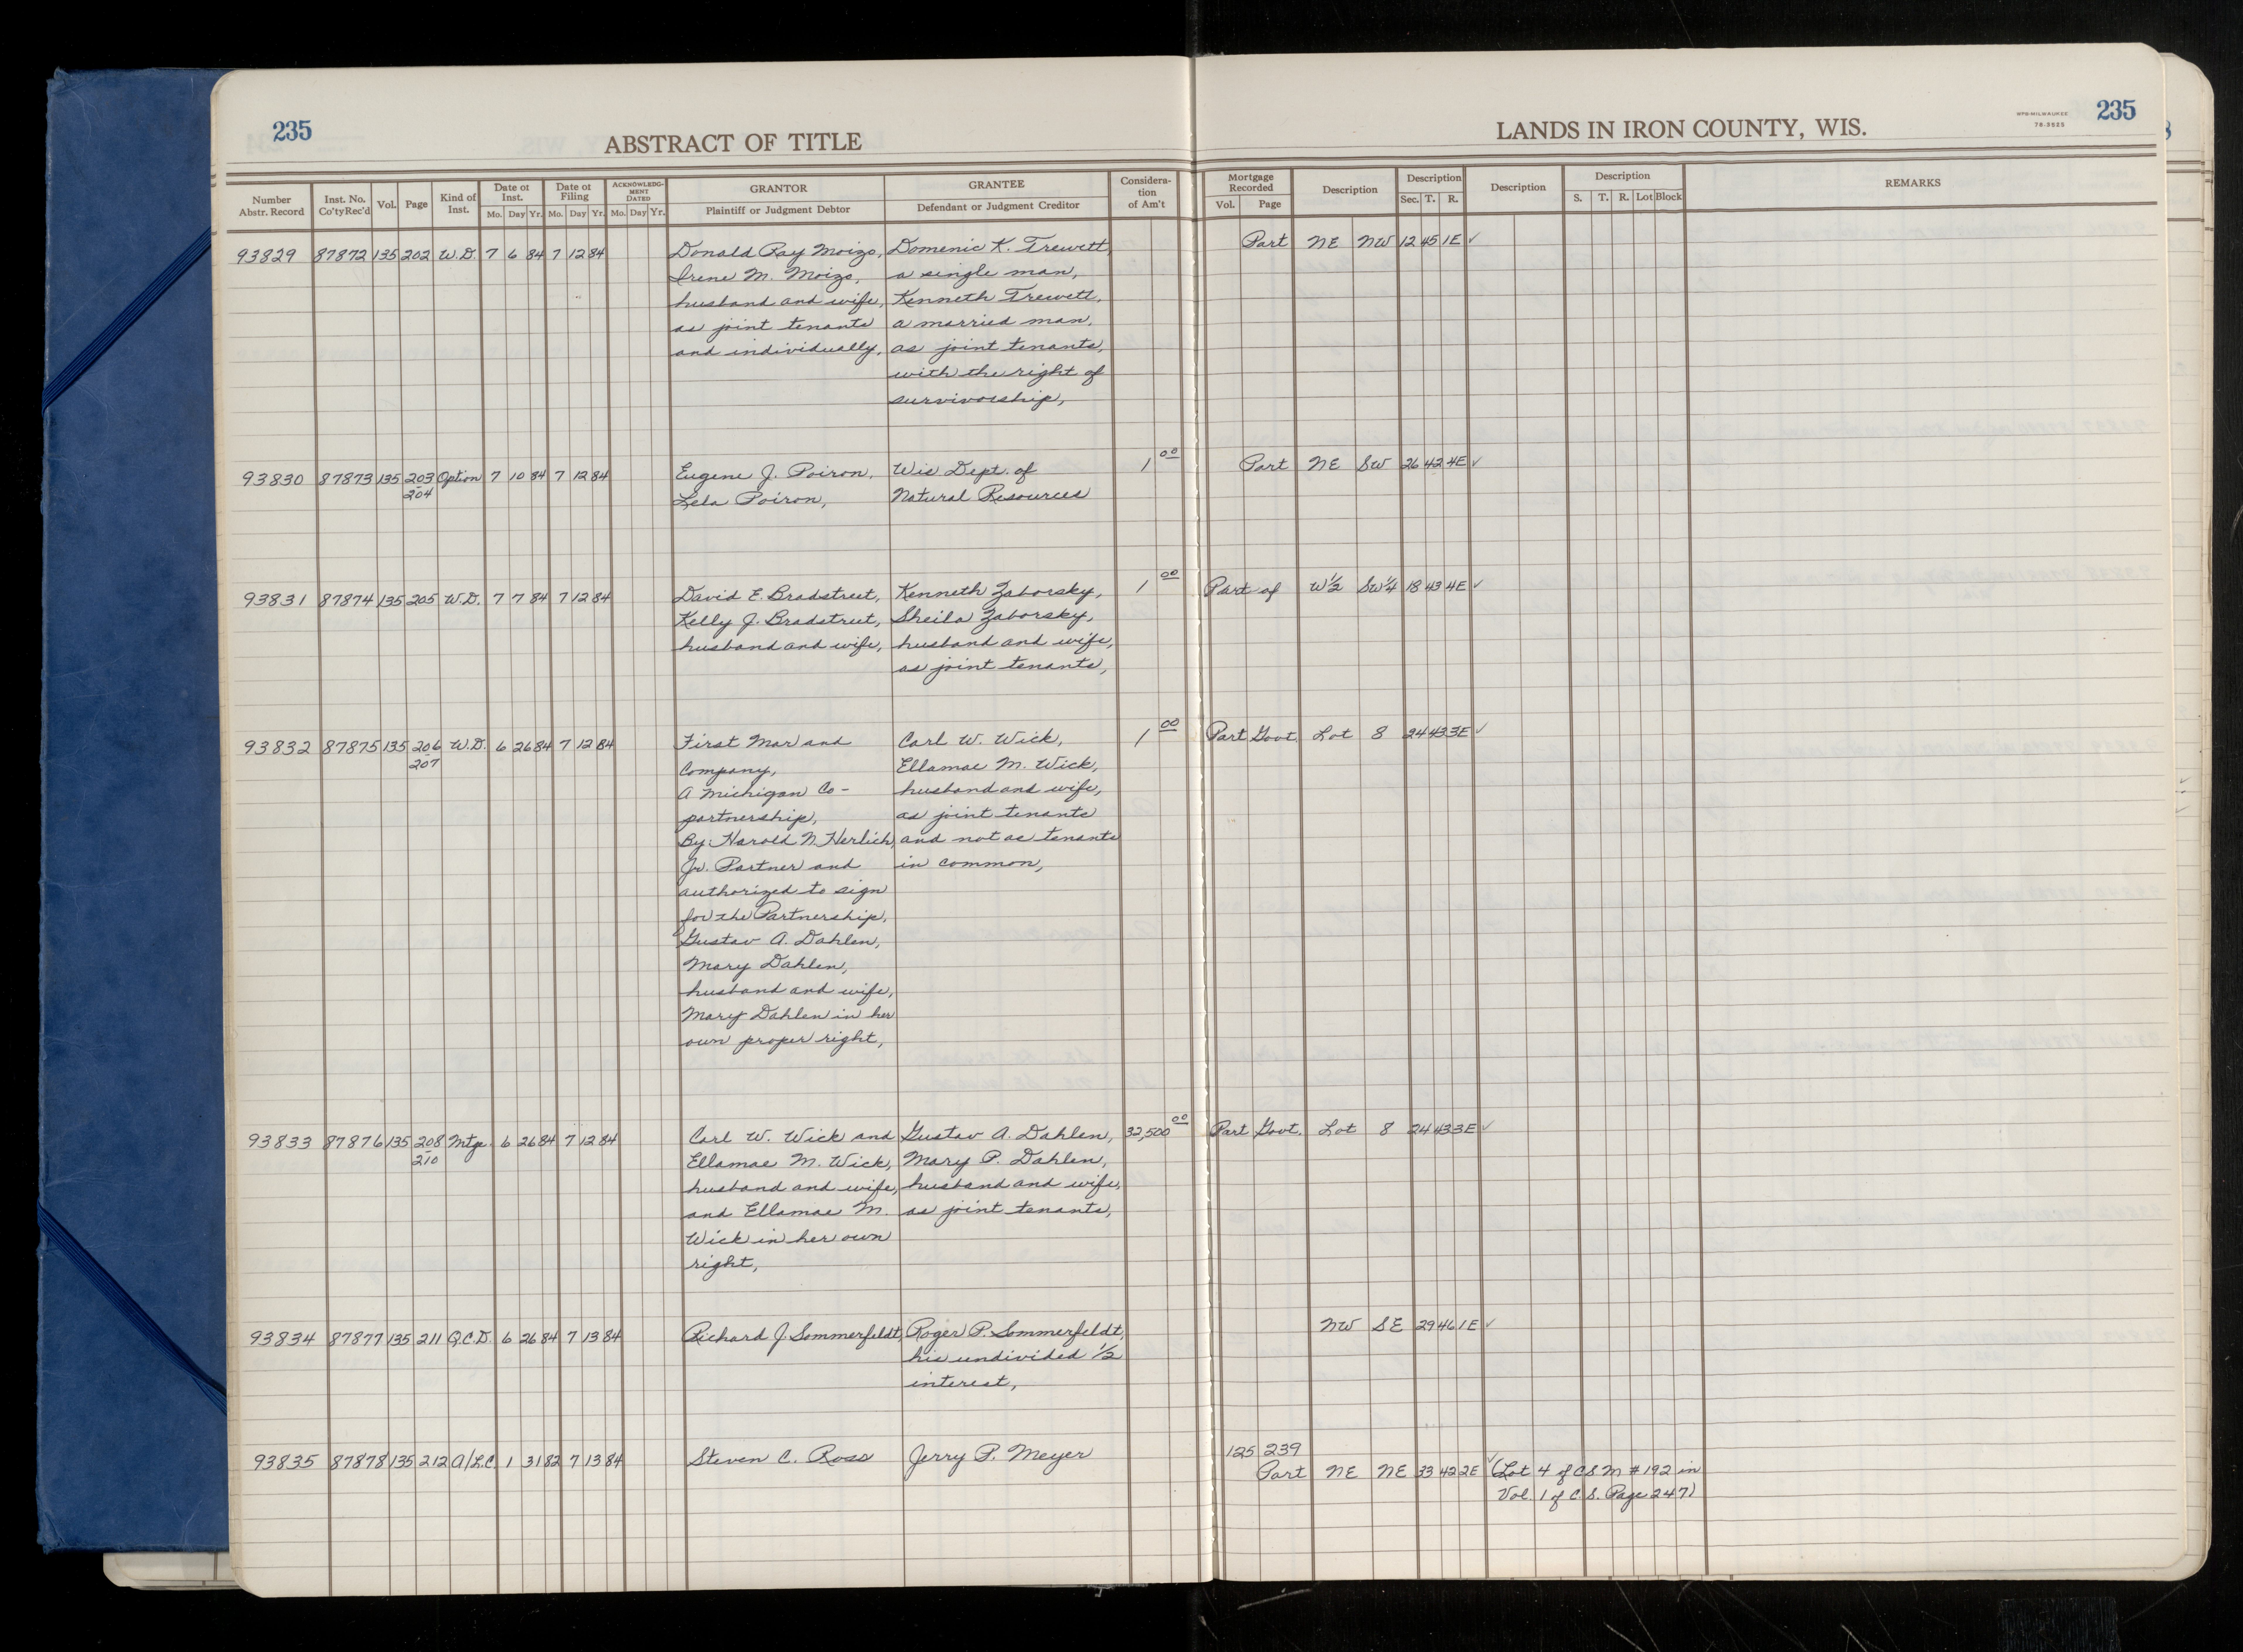 235
ABSTRACT OF TITLE
LANDS IN IRON COUNTY, WIS.
WPB-MILWAUKEE
235
Number Abstr. Record
Inst. No. Co'ty Rec'd
Vol.
Page
Kind of Inst.
Date of Inst. Mo. Day Yr.
Date of Filing Mo. Day Yr.
ACKNOWLEDGMENT DATED Mo. Day Yr.
GRANTOR Plaintiff or Judgment Debtor
GRANTEE Defendant or Judgment Creditor
Consideration of Am't
Mortgage Recorded Vol. Page
Description
Description Sec. T. R.
Description
Description S. T. R. Lot Block
REMARKS
93829 87872 135 202 W.D. 7 6 84 7 12 84 Donald Ray Moizo, Domenic K. Trewett, Part NE NW 12 45 1E ✓
Irene M. Moizo, a single man,
husband and wife, Kenneth Trewett,
as joint tenants a married man,
and individually, as joint tenants,
with the right of
survivorship,
93830 87873 135 203 Option 7 10 84 7 12 84 Eugene J. Poiron, Wis Dept. of 1 00 Part NE SW 26 42 4E ✓
204 Lela Poiron, Natural Resources
93831 87874 135 205 W.D. 7 7 84 7 12 84 David E. Bradstreet, Kenneth Zaborsky, 1 00 Part of W½ SW¼ 18 43 4E ✓
Kelly J. Bradstreet, Sheila Zaborsky,
husband and wife, husband and wife,
as joint tenants,
93832 87875 135 206 W.D. 6 26 84 7 12 84 First Mar and Carl W. Wick, 1 00 Part Govt. Lot 8 24 43 3E ✓
207 Company, Ellamae M. Wick,
A Michigan Co- husband and wife,
partnership, as joint tenants
By: Harold N. Herlich, and not as tenants
Jr. Partner and in common,
authorized to sign
for the Partnership,
Gustav A. Dahlen,
Mary Dahlen,
husband and wife,
Mary Dahlen in her
own proper right,
93833 87876 135 208 Mtge. 6 26 84 7 12 84 Carl W. Wick and Gustav A. Dahlen, 32,500 00 Part Govt. Lot 8 24 43 3E ✓
210 Ellamae M. Wick, Mary P. Dahlen,
husband and wife, husband and wife,
and Ellamae M. as joint tenants,
Wick in her own
right,
93834 87877 135 211 Q.C.D. 6 26 84 7 13 84 Richard J. Sommerfeldt, Roger P. Sommerfeldt, NW SE 29 46 1E ✓
his undivided ½
interest,
93835 87878 135 212 A/L.C. 1 31 82 7 13 84 Steven C. Ross Jerry P. Meyer 125 239
Part NE NE 33 42 2E ✓ (Lot 4 of C.S.M. #192 in
Vol. 1 of C.S. Page 247)